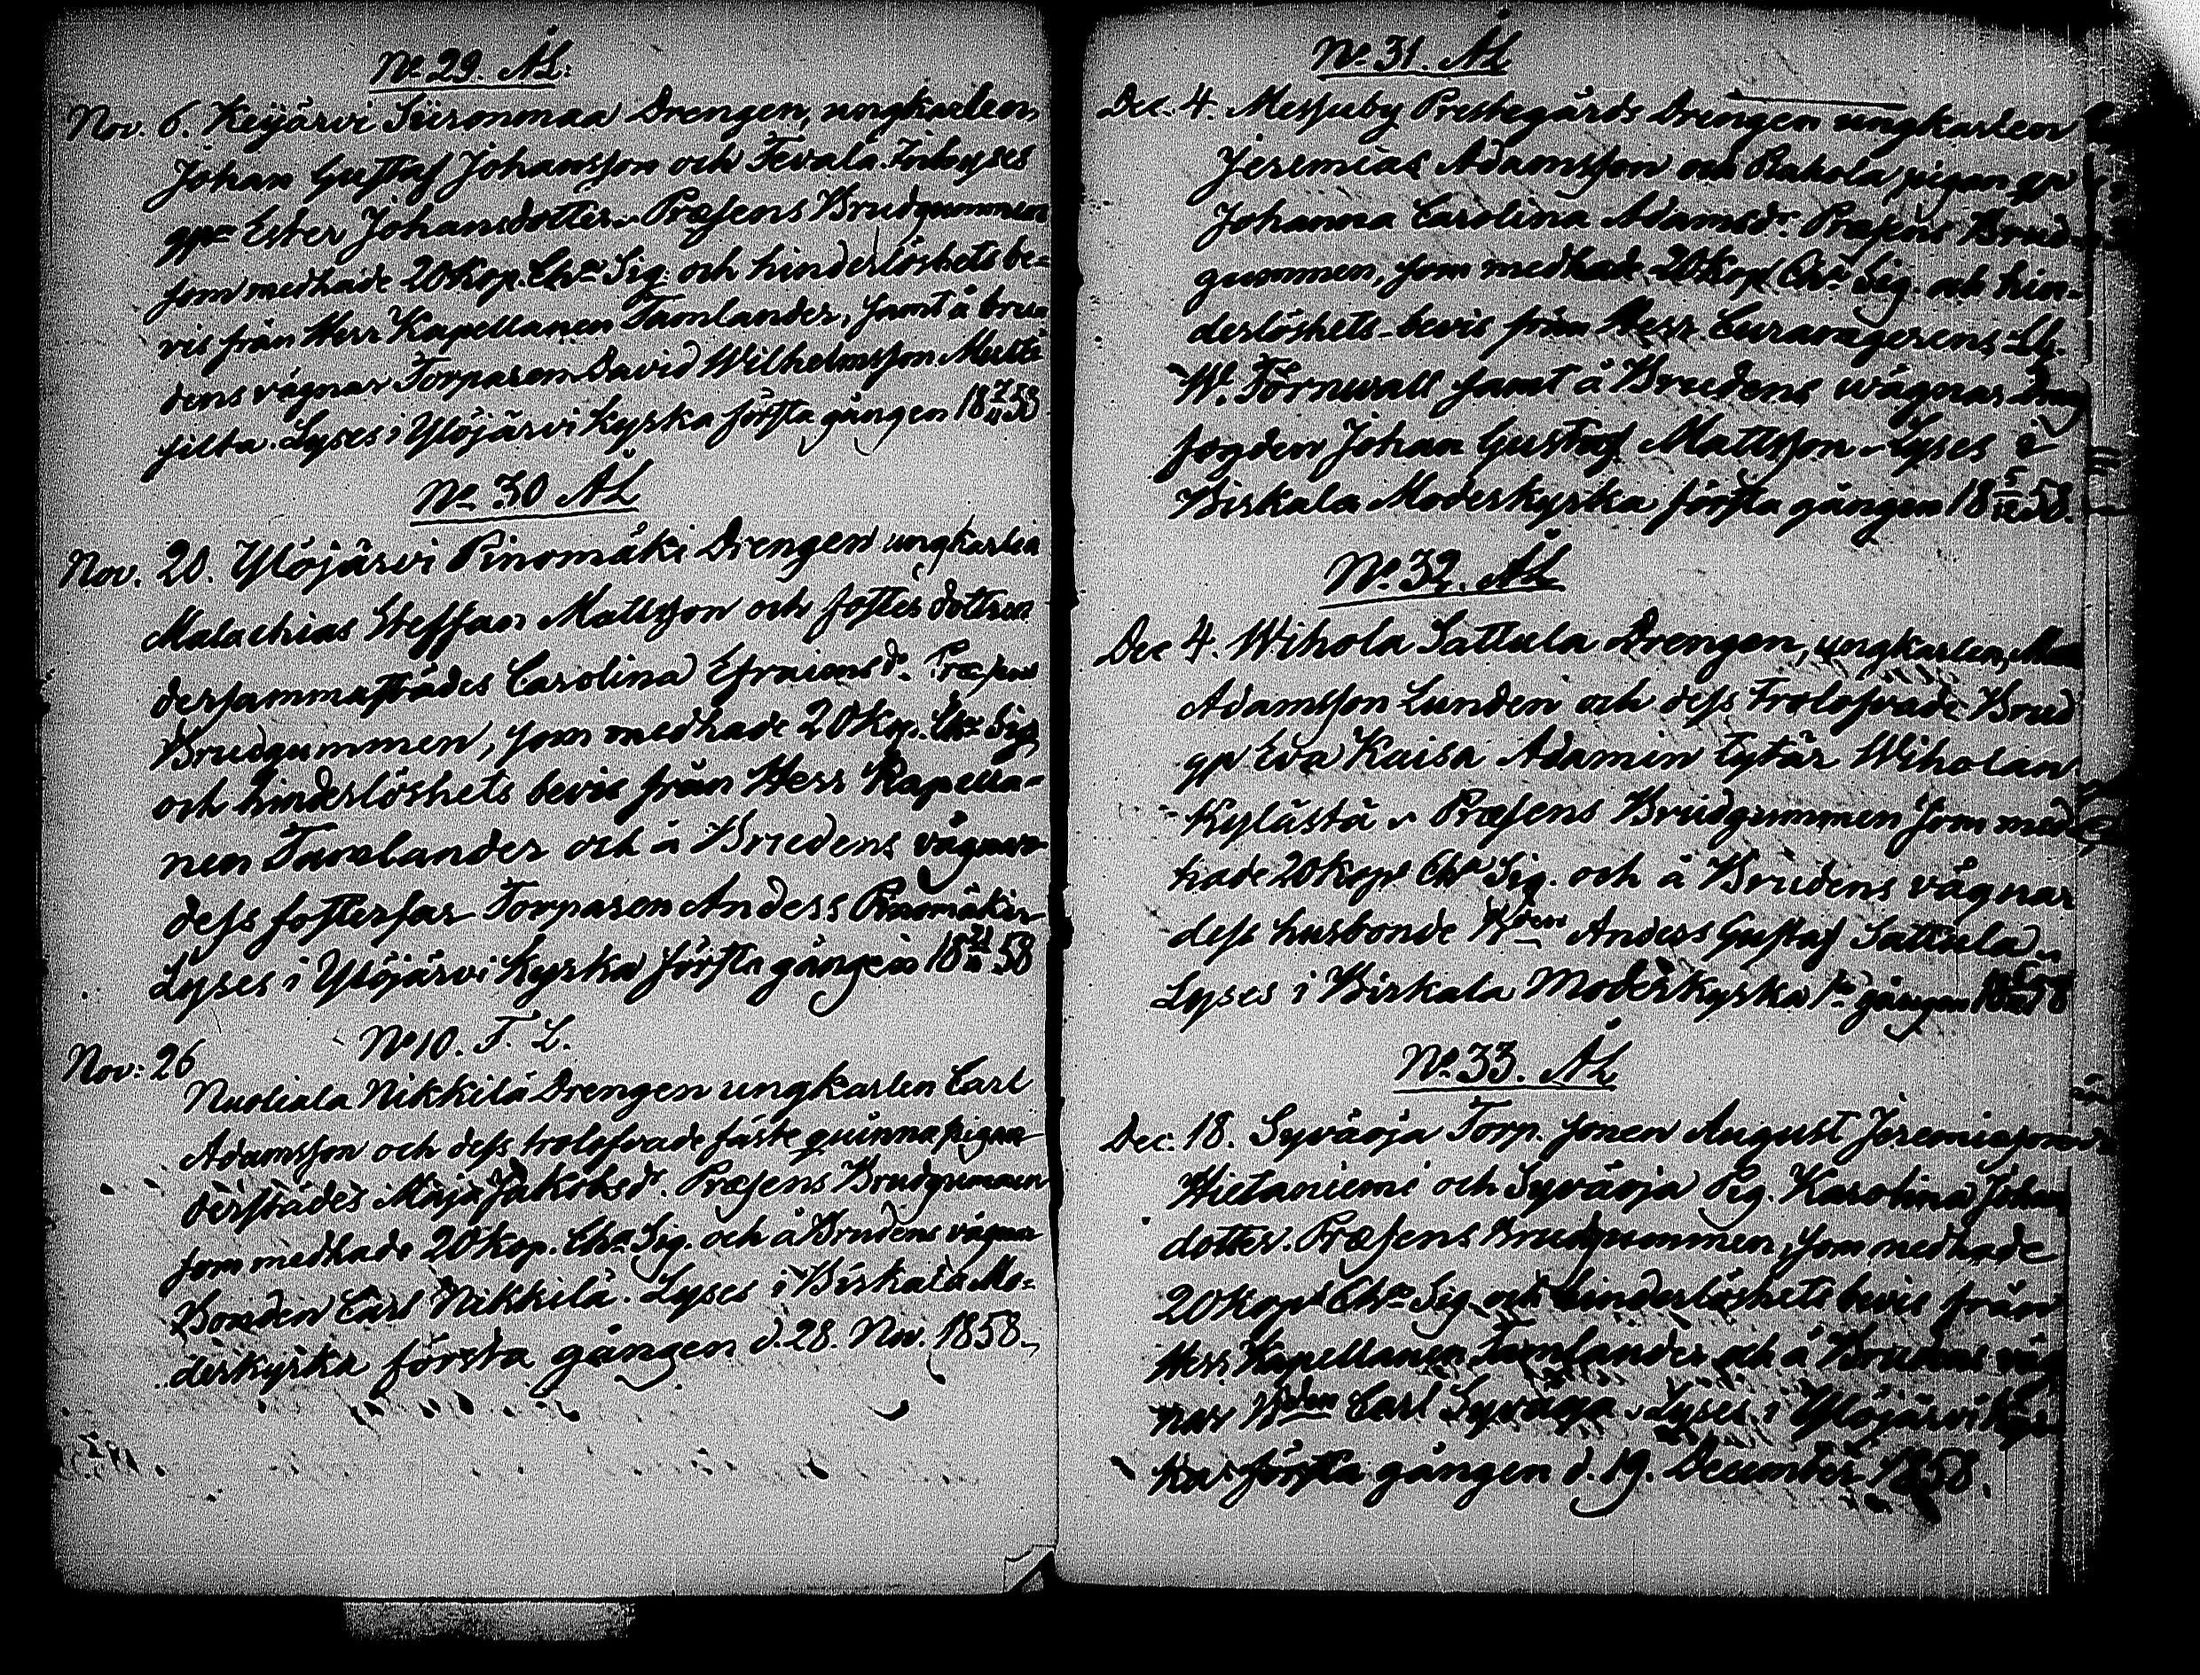 No 29. ÅL:
Nov. 6. Keijärvi Siironmaa Drengen, ungkarlen
Johan Gustaf Johansson och Tevala
gpn Ester Johansdotter. Præsens Brudgummen
som medhade 20 Kop. Cha Sig. och hinderlöshets be-
vis från Herr Kapellanen Tamlander, samt å bru-
dens vägnar Torparen David Wilhelmsson Metti
silta. Lyses i Ylöjärvi Kyrka första gången 18 7/11 58
No 30 ÅL
Nov. 20. Ylöjärvi Pinomäki Drengen ungkarlen
Malachias Steffan Mattsson och foster dottren
dersammastädes Carolina Efraimsdr. Præsens
Brudgummen, som medhade 20 Kop. Cha Sig
och hinderlöshets bevis från Herr Kapella-
nen Tamlander och å Brudens vägnar
dess fosterfar Torparen Anders Pinomäki
Lyses i Ylöjärvi Kyrka första gången 18 21/11 58
No 10. F. L.
Nov: 26
Nuoliala Nikkilä Drengen ungkarlen Carl
Adamsson och dess trolofvade fäste quinna pigan
derstädes Maja Jakobsdr. Præsens Brudgummen
som medhade 20 Kop. Cha Sig. och å Brudens vägnar
Bonden Carl Nikkilä. Lyses i Birkala Mo-
derkyrka första gången d. 28. Nov. 1858.
No 31. ÅL
Dec. 4. Messuby Prestegårds Drengen ungkarlen
Jeremias Adamsson och Rahola pigan gp
Johanna Carolina Adamsdr. Præsens Brud-
gummen, som medhade 20 Kop Cha Sig. och hin-
derlöshets-bevis från Herr Curam gerens
W. Törnwall samt å Brudens wägnar
fogden Johan Gustaf Mattsson. Lyses i
Birkala Moderkyrka första gången 18 5/12 58.
No 32. ÅL
Dec 4. Wihola Sattula Drengen, ungkarlen,
Adamsson Lunden och dess Trolofvade Brud
gp Eva Kaisa Adamin tytär Wiholan
Kylästä. Præsens Brudgummen som med
hade 20 Kop. Cha Sig. och å Brudens vägnar
dess husbonde Bden Anders Gustaf Sattula.
Lyses i Birkala Moderkyrka 1sta gången 18 5/12 58
No 33. ÅL
Dec. 18. Syväoja Torp. sonen August Jeremiasson
Hietaniemi och Syväoja Pig. Karolina Johan
dotter. Præsens Brudgummen, som medhade
20 Kop. Cha Sig och hinderlöshets bevis från
Herr Kapellanen Tamlander och å Brudens väg
nar Bden Carl Syväoja. Lyses i Ylöjärvi Kyr
ka första gången d. 19. December 1858.